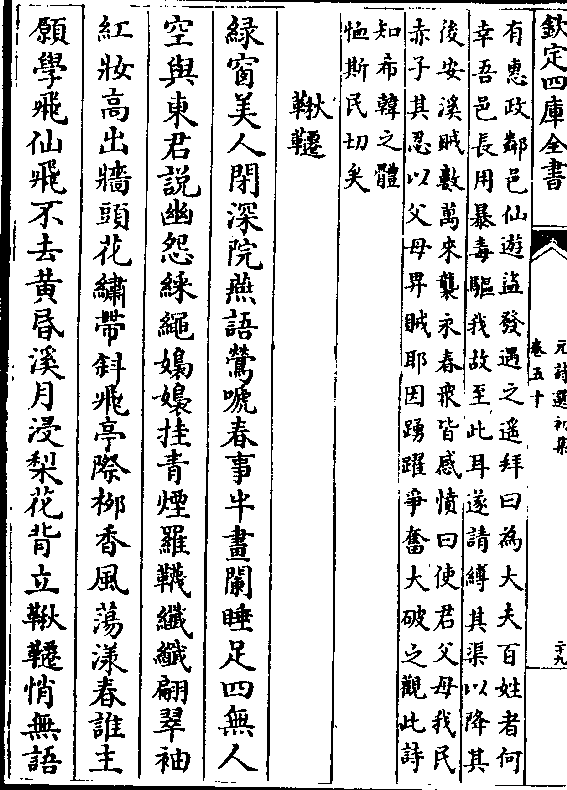 欽定四庫全書
元詩選初集
卷五十
二十九
有惠政鄰邑仙遊盜發遇之遥拜曰為大夫百姓者何
幸吾邑長用暴毒驅我故至此耳遂請縛其渠以降其
後安溪賊數萬來襲永春衆皆感憤曰使君父母我民
赤子其忍以父母畀賊耶因踴躍爭奮大破之觀此詩
知希韓之體
恤斯民切矣
鞦韆
緑窗美人閉深院燕語鶯唬春事半晝闌睡足四無人
空與東君説幽怨綵繩嫋嫋挂青煙羅韈纎纎翩翠袖
紅妝高出牆頭花繡帶斜飛亭際栁香風蕩漾春誰主
願學飛仙飛不去黄昏溪月浸梨花背立鞦韆悄無語